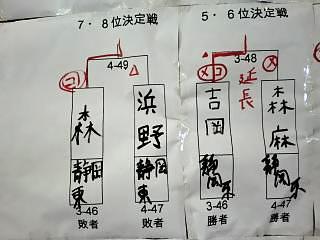 7・8位決定戦
4-49
コ
△
森
静岡東
浜野
静岡東
3-46
敗者
4-47
敗者
5・6位決定戦
3-48
メコ
延長
メ
吉岡
静岡東
森麻
静岡東
3-46
勝者
4-47
勝者